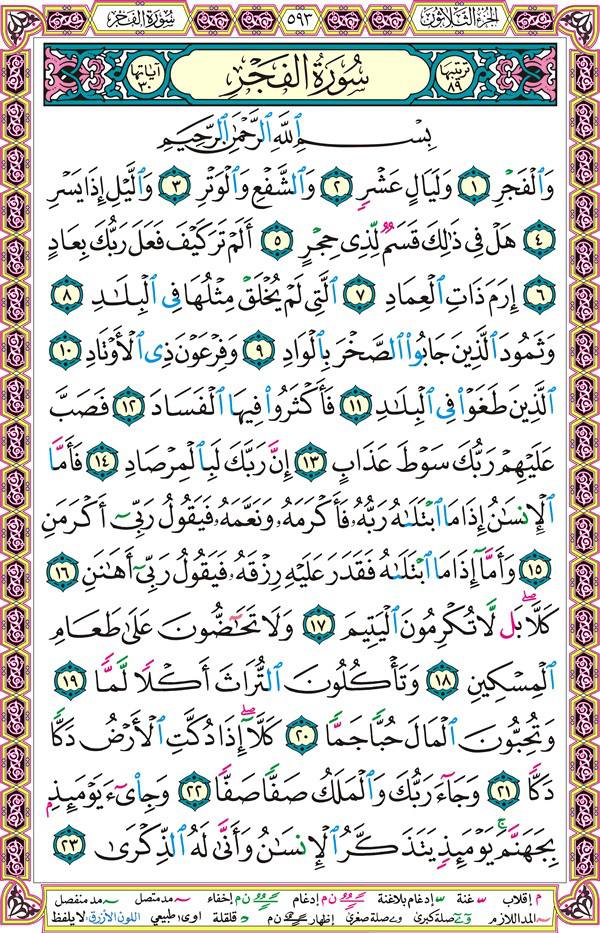 سُورَةُ الفَجْرِ ٥٩٣ الجُزءُ الثَّلاَثُونَ
آيَاتُهَا ٣٠ سُورَةُ الفَجْرِ تَرتِيبُهَا ٨٩
بِسْمِ ٱللَّهِ ٱلرَّحْمَٰنِ ٱلرَّحِيمِ
وَٱلْفَجْرِ ١ وَلَيَالٍ عَشْرٍ ٢ وَٱلشَّفْعِ وَٱلْوَتْرِ ٣ وَٱلَّيْلِ إِذَا يَسْرِ
٤ هَلْ فِى ذَٰلِكَ قَسَمٌ لِّذِى حِجْرٍ ٥ أَلَمْ تَرَ كَيْفَ فَعَلَ رَبُّكَ بِعَادٍ
٦ إِرَمَ ذَاتِ ٱلْعِمَادِ ٧ ٱلَّتِى لَمْ يُخْلَقْ مِثْلُهَا فِى ٱلْبِلَٰدِ ٨
وَثَمُودَ ٱلَّذِينَ جَابُوا۟ ٱلصَّخْرَ بِٱلْوَادِ ٩ وَفِرْعَوْنَ ذِى ٱلْأَوْتَادِ ١٠
ٱلَّذِينَ طَغَوْا۟ فِى ٱلْبِلَٰدِ ١١ فَأَكْثَرُوا۟ فِيهَا ٱلْفَسَادَ ١٢ فَصَبَّ
عَلَيْهِمْ رَبُّكَ سَوْطَ عَذَابٍ ١٣ إِنَّ رَبَّكَ لَبِٱلْمِرْصَادِ ١٤ فَأَمَّا
ٱلْإِنسَٰنُ إِذَا مَا ٱبْتَلَىٰهُ رَبُّهُۥ فَأَكْرَمَهُۥ وَنَعَّمَهُۥ فَيَقُولُ رَبِّىٓ أَكْرَمَنِ
١٥ وَأَمَّآ إِذَا مَا ٱبْتَلَىٰهُ فَقَدَرَ عَلَيْهِ رِزْقَهُۥ فَيَقُولُ رَبِّىٓ أَهَٰنَنِ ١٦
كَلَّا ۖ بَل لَّا تُكْرِمُونَ ٱلْيَتِيمَ ١٧ وَلَا تَحَٰٓضُّونَ عَلَىٰ طَعَامِ
ٱلْمِسْكِينِ ١٨ وَتَأْكُلُونَ ٱلتُّرَاثَ أَكْلًا لَّمًّا ١٩
وَتُحِبُّونَ ٱلْمَالَ حُبًّا جَمًّا ٢٠ كَلَّآ ۖ إِذَا دُكَّتِ ٱلْأَرْضُ دَكًّا
دَكًّا ٢١ وَجَآءَ رَبُّكَ وَٱلْمَلَكُ صَفًّا صَفًّا ٢٢ وَجِا۟ىٓءَ يَوْمَئِذٍۭ
بِجَهَنَّمَ ۚ يَوْمَئِذٍ يَتَذَكَّرُ ٱلْإِنسَٰنُ وَأَنَّىٰ لَهُ ٱلذِّكْرَىٰ ٢٣
م إقلاب غنة إدغام بلاغنة ن م إدغام ن م إخفاء مد متصل مد منفصل
المد اللازم صلة كبرى صلة صغرى إظهار ن م قلقلة اوى طبيعي اللون الأزرق: لايلفظ